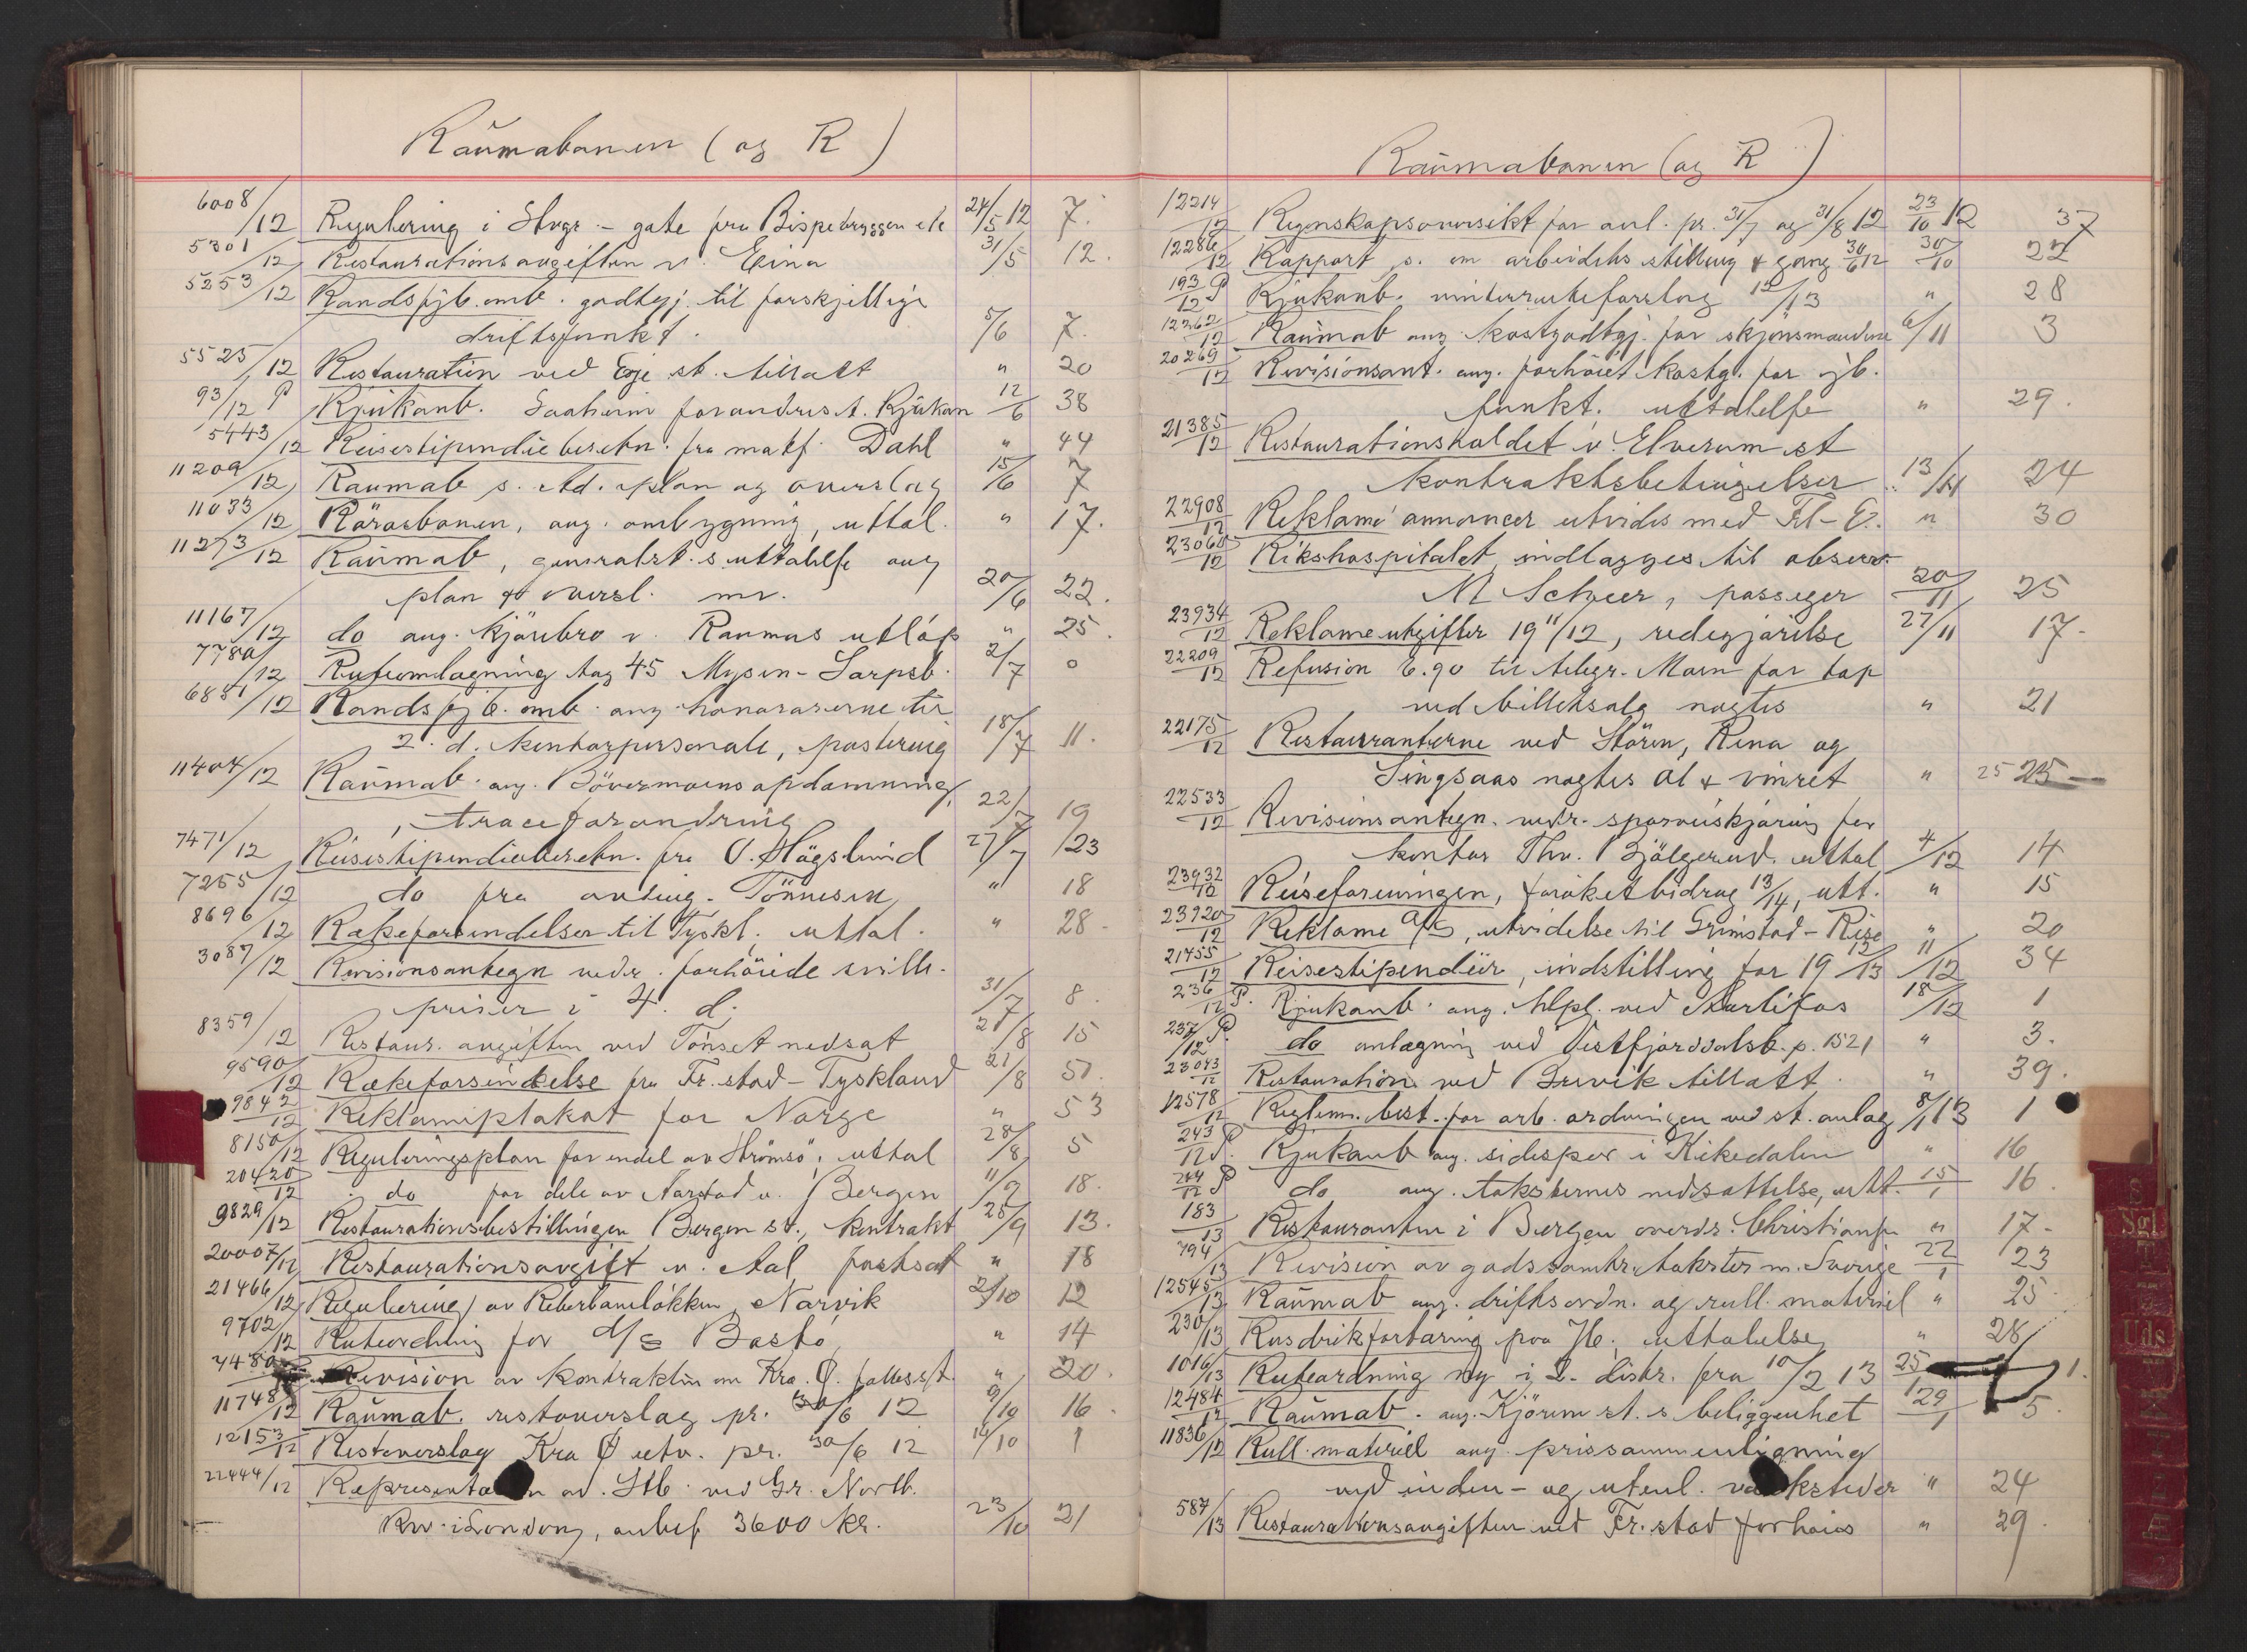 Raumabanen (og R)
6008/12 Regulering i Stvgr. - gate fra Bispebryggen etc 24/5 12 7.
5301/12 Restaurationsavgiften v. Eina 31/5 12.
5253/12 Randsfjb. omb. godtgj. til forskjellige
driftsfunkt. 5/6 7.
5525/12 Restauration ved st. tillatt " 20
93/12 P Rjukanb. Saaheim forandres t. Rjukan 12/6 38
5443/12 Reisestipendieberetn. fra Dahl " 44
11209/12 Raumab s. plan og overslag 15/6 7
11033/12 Rörosbanen, ang. ombygning, uttal. " 17.
11273/12 Raumab, generalst. s uttalelse ang
plan & oversl. mv. 20/6 22.
11167/12 do ang. kjörebro v. Raumas utlöp " 25.
7780/12 Ruteomlægning tog 45 Mysen - Sarpsb. 2/7 0
6851/12 Randsfjb. omb. ang. honorarerne til
2. d. kontorpersonale, postering 18/7 11.
11404/12 Raumab. ang. Bövermoens opdæmning,
traceforandring 22/7 19
7471/12 Reisestipendieberetn. fra O. Hägslund 27/7 23
7255/12 do fra avding. Tönnesen " 18
8696/12 Rækeforsendelser til Tyskl. uttal. " 28.
3087/12 Revisionsantegn vedr. forhöiede sville-
priser i 4. d. 31/7 8.
8359/12 Restaur. avgiften ved Tönset nedsat 21/8 15
9590/12 Rækeforsendelse fra Fr.stad - Tyskland 21/8 50.
9842/12 Reklameplakat for Norge " 53
8150/12 Reguleringsplan for endel av Strömsö, uttal 28/8 5
20420/12 do for dele av Aarstad v. Bergen 11/9 18.
9829/12 Restaurationsbestillingen Bergen st., kontrakt 25/9 13.
20007/12 Restaurationsavgift v. Aal, fastsat " 18
21466/12 Regulering av Reberbaneløkken, Narvik 2/10 12
9702/12 Ruteordning for D/S Bastö " 14
Revision av kontrakten om Kra. Ø. fællesst. " 20.
11748/12 Raumab. restoverslag pr. 30/6 12 9/10 16.
12153/12 Restoverslag Kra Ø utv. pr. 30/6 12 /10 1
22444/12 av. Stb. ved Gr. North.
Rw. i London, anbef 3600 kr. 23/10 21
Raumabanen (og R)
12214/12 Regnskapsoversikt for anl. pr. 31/7 og 31/8 12 23/10 12 37
12286/12 Rapport s. om arbeidets stilling & gang 30/6 12 30/10 22
193/12 P Rjukanb. vinterruteforslag 12/13 " 28
12262/12 Raumab ang. kostgodtgj. for skjönsmændene 6/11 3
20269/12 Revisionsant. ang. forhöiet kostg. for jb.
funkt. uttalelse " 29.
21385/12 Restaurationsholdet v. Elverum st
kontraktsbetingelser 13/11 24
22908/12 Reklameannoncer utvides med Fl-E. " 30
23060/12 Rikshospitalet, indlægges til observ.
M Scheer, passager 20/11 25
23934/12 Reklameutgifter 1911/12, redegjörelse 27/11 17.
22209/12 Refusion 6.90 til telegr. Moen for tap
ved billetsalg nægtes " 21
22175/12 Restauranterne ved Stören, Rena og
Singsaas nægtes öl & vinret " 25 25
22533/12 Revisionsantegn. vedr. sporveiskjöring for
kontor Thv. Bjölgerud. uttal 4/12 14
23932/12 Reiseforeningen, foröket bidrag 13/14, utt. " 15
23920/12 Reklame A/S, utvidelse til Grimstad - Rise " 20
21455/12 Reisestipendier, indstilling for 19 12/13 11/12 34
236/12 P. Rjukanb. ang. hlpl. ved Mælifos 18/12 1
237/12 P. do anlægning ved Vestfjorddalsb. p. 1521 " 3.
23043/12 Restauration ved Brevik tillatt. " 39.
12578/12 Reglem. best. for arb. ordningen ved st. anlæg 8/1 13 1
243/12 P. Rjukanb ang. sidespor i Kikedalen " 16
244/12 P do ang. taksternes nedsættelse, utt. 15/1 16
183/13 Restauranten i Bergen overdr. " 17.
794/13 Revision av godssamtr. takster m. Sverige 22/1 23
12545/13 Raumab ang. driftsordn. og rull. materiel " 25
230/13 Rusdrikfortæring paa Jb. uttalelse " 28
1016/13 Ruteordning ny i 2. distr. fra 10/2 13 25/1 1.
12484/12 Raumab. ang. Kjörem st. s beliggenhet 29/1 5.
11836/12 Rull. materiel ang. prissammenligning
ved inden- og utenl. verksteder " 24
587/13 Restaurationsavgiften ved Fr.stad forhöies " 29.
Sgl.
Uds